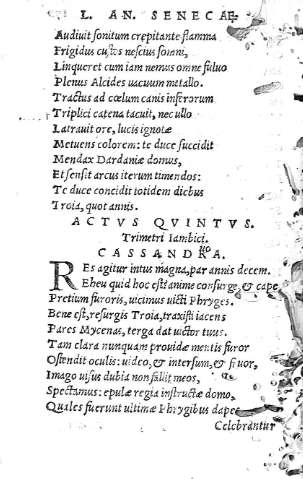 L. AN. SENECAE
Audiuit sonitum crepitante flamma
Frigidus custos nescius somni,
Linqueret cum iam nemus omne fuluo
Plenus Alcides uacuum metallo.
Tractus ad cœlum canis inferorum
Triplici catena tacuit, nec ullo
Latrauit ore, lucis ignotæ
Metuens colorem: te duce succidit
Mendax Dardaniæ domus,
Et sensit arcus iterum timendos:
Te duce concidit totidem diebus
Troia, quot annis.
ACTVS QVINTVS.
Trimetri Iambici.
CASSANDRA.
RES agitur intus magna, par annis decem.
Eheu quid hoc est? anime consurge, & cape
Pretium furoris, uicimus uicti Phryges.
Bene est, resurgis Troia, traxisti iacens
Pares Mycenas, terga dat uictor tuus.
Tam clara nunquam prouidæ mentis furor
Ostendit oculis: uideo, & intersum, & fruor,
Imago uisus dubia non fallit meos,
Spectamus: epulæ regia instructæ domo,
Quales fuerunt ultimæ Phrygibus dapes
Celebrantur